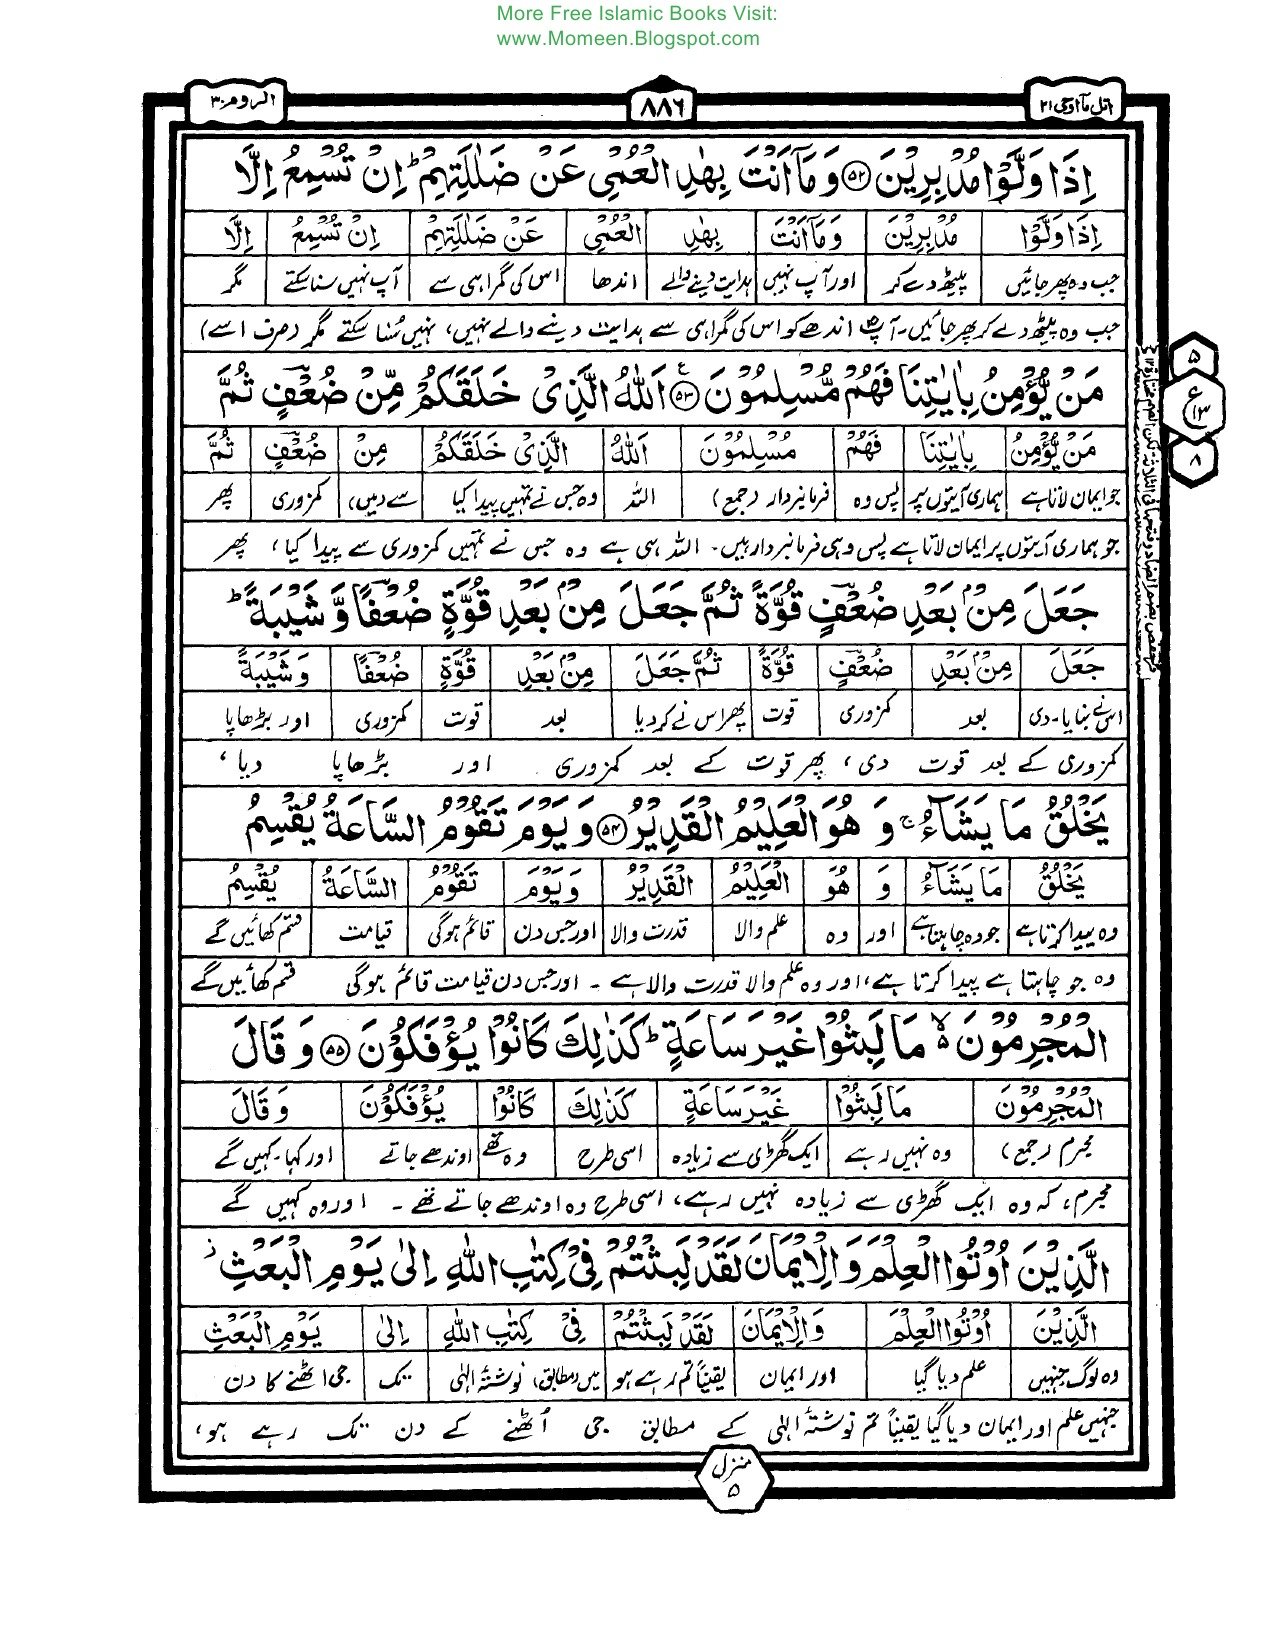 More Free Islamic Books Visit:
www.Momeen.Blogspot.com
اتل مآ اوحی ۲۱ ۸۸۶ الروم ۳۰
اِذَا وَلَّوْا مُدْبِرِیْنَ ۝۵۲ وَمَآ اَنْتَ بِهٰدِ الْعُمْیِ عَنْ ضَلٰلَتِهِمْ ؕ اِنْ تُسْمِعُ اِلَّا
اِذَا وَلَّوْا مُدْبِرِیْنَ وَمَآ اَنْتَ بِهٰدِ الْعُمْیِ عَنْ ضَلٰلَتِهِمْ اِنْ تُسْمِعُ اِلَّا
جب وہ پھر جائیں پیٹھ دے کر اور آپ نہیں ہدایت دینے والے اندھا اس کی گمراہی سے آپ نہیں سنا سکتے مگر
جب وہ پیٹھ دے کر پھر جائیں۔ آپؐ اندھے کو اس کی گمراہی سے ہدایت دینے والے نہیں، نہیں سُنا سکتے مگر (صرف اسے)
مَنْ یُّؤْمِنُ بِاٰیٰتِنَا فَهُمْ مُّسْلِمُوْنَ ۝۵۳ اَللهُ الَّذِیْ خَلَقَكُمْ مِّنْ ضُعْفٍ ثُمَّ
مَنْ یُّؤْمِنُ بِاٰیٰتِنَا فَهُمْ مُسْلِمُوْنَ اَللهُ الَّذِیْ خَلَقَكُمْ مِنْ ضُعْفٍ ثُمَّ
جو ایمان لاتا ہے ہماری آیتوں پر پس وہ فرمانبردار (جمع) اللہ وہ جس نے تمہیں پیدا کیا سے (میں) کمزوری پھر
جو ہماری آیتوں پر ایمان لاتا ہے پس وہی فرمانبردار ہیں۔ اللہ ہی ہے وہ جس نے تمہیں کمزوری سے پیدا کیا، پھر
جَعَلَ مِنْۢ بَعْدِ ضُعْفٍ قُوَّةً ثُمَّ جَعَلَ مِنْۢ بَعْدِ قُوَّةٍ ضُعْفًا وَّ شَیْبَةً ؕ
جَعَلَ مِنْۢ بَعْدِ ضُعْفٍ قُوَّةً ثُمَّ جَعَلَ مِنْۢ بَعْدِ قُوَّةٍ ضُعْفًا وَ شَیْبَةً
اس نے بنایا۔ دی بعد کمزوری قوت پھر اس نے کر دیا بعد قوت کمزوری اور بڑھاپا
کمزوری کے بعد قوت دی، پھر قوت کے بعد کمزوری اور بڑھاپا دیا،
یَخْلُقُ مَا یَشَآءُ ۚ وَ هُوَ الْعَلِیْمُ الْقَدِیْرُ ۝۵۴ وَ یَوْمَ تَقُوْمُ السَّاعَةُ یُقْسِمُ
یَخْلُقُ مَا یَشَآءُ وَ هُوَ الْعَلِیْمُ الْقَدِیْرُ وَ یَوْمَ تَقُوْمُ السَّاعَةُ یُقْسِمُ
وہ پیدا کرتا ہے جو وہ چاہتا ہے اور وہ علم والا قدرت والا اور جس دن قائم ہوگی قیامت قسم کھائیں گے
وہ جو چاہتا ہے پیدا کرتا ہے، اور وہ علم والا قدرت والا ہے ۔ اور جس دن قیامت قائم ہوگی قسم کھائیں گے
الْمُجْرِمُوْنَ ۙ۬ مَا لَبِثُوْا غَیْرَ سَاعَةٍ ؕ كَذٰلِكَ كَانُوْا یُؤْفَكُوْنَ ۝۵۵ وَ قَالَ
الْمُجْرِمُوْنَ مَا لَبِثُوْا غَیْرَ سَاعَةٍ كَذٰلِكَ كَانُوْا یُؤْفَكُوْنَ وَ قَالَ
مجرم (جمع) وہ نہیں رہے ایک گھڑی سے زیادہ اسی طرح وہ تھے اوندھے جاتے اور کہا۔ کہیں گے
مجرم، کہ وہ ایک گھڑی سے زیادہ نہیں رہے، اسی طرح وہ اوندھے جاتے تھے ۔ اور وہ کہیں گے
الَّذِیْنَ اُوْتُوا الْعِلْمَ وَ الْاِیْمَانَ لَقَدْ لَبِثْتُمْ فِیْ كِتٰبِ اللهِ اِلٰی یَوْمِ الْبَعْثِ ؗ
الَّذِیْنَ اُوْتُوا الْعِلْمَ وَ الْاِیْمَانَ لَقَدْ لَبِثْتُمْ فِیْ كِتٰبِ اللهِ اِلٰی یَوْمِ الْبَعْثِ
وہ لوگ جنہیں علم دیا گیا اور ایمان یقیناً تم رہے ہو میں (مطابق) نوشتۂ الٰہی تک جی اٹھنے کا دن
جنہیں علم اور ایمان دیا گیا یقیناً تم نوشتۂ الٰہی کے مطابق جی اُٹھنے کے دن تک رہے ہو،
۵
ع
۱۳
۸
منزل
۵